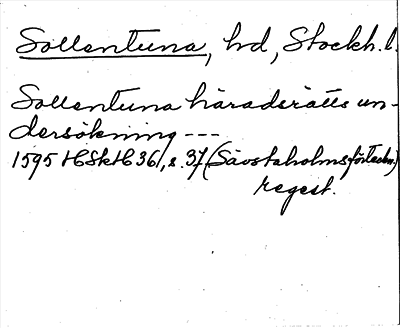 Sollentuna, hd, Stockh. l.
Sollentuna häradsrätts un-
dersökning ---
1595 HSkH 36, s. 37 (Sävstaholmsförteckn.)
regest.